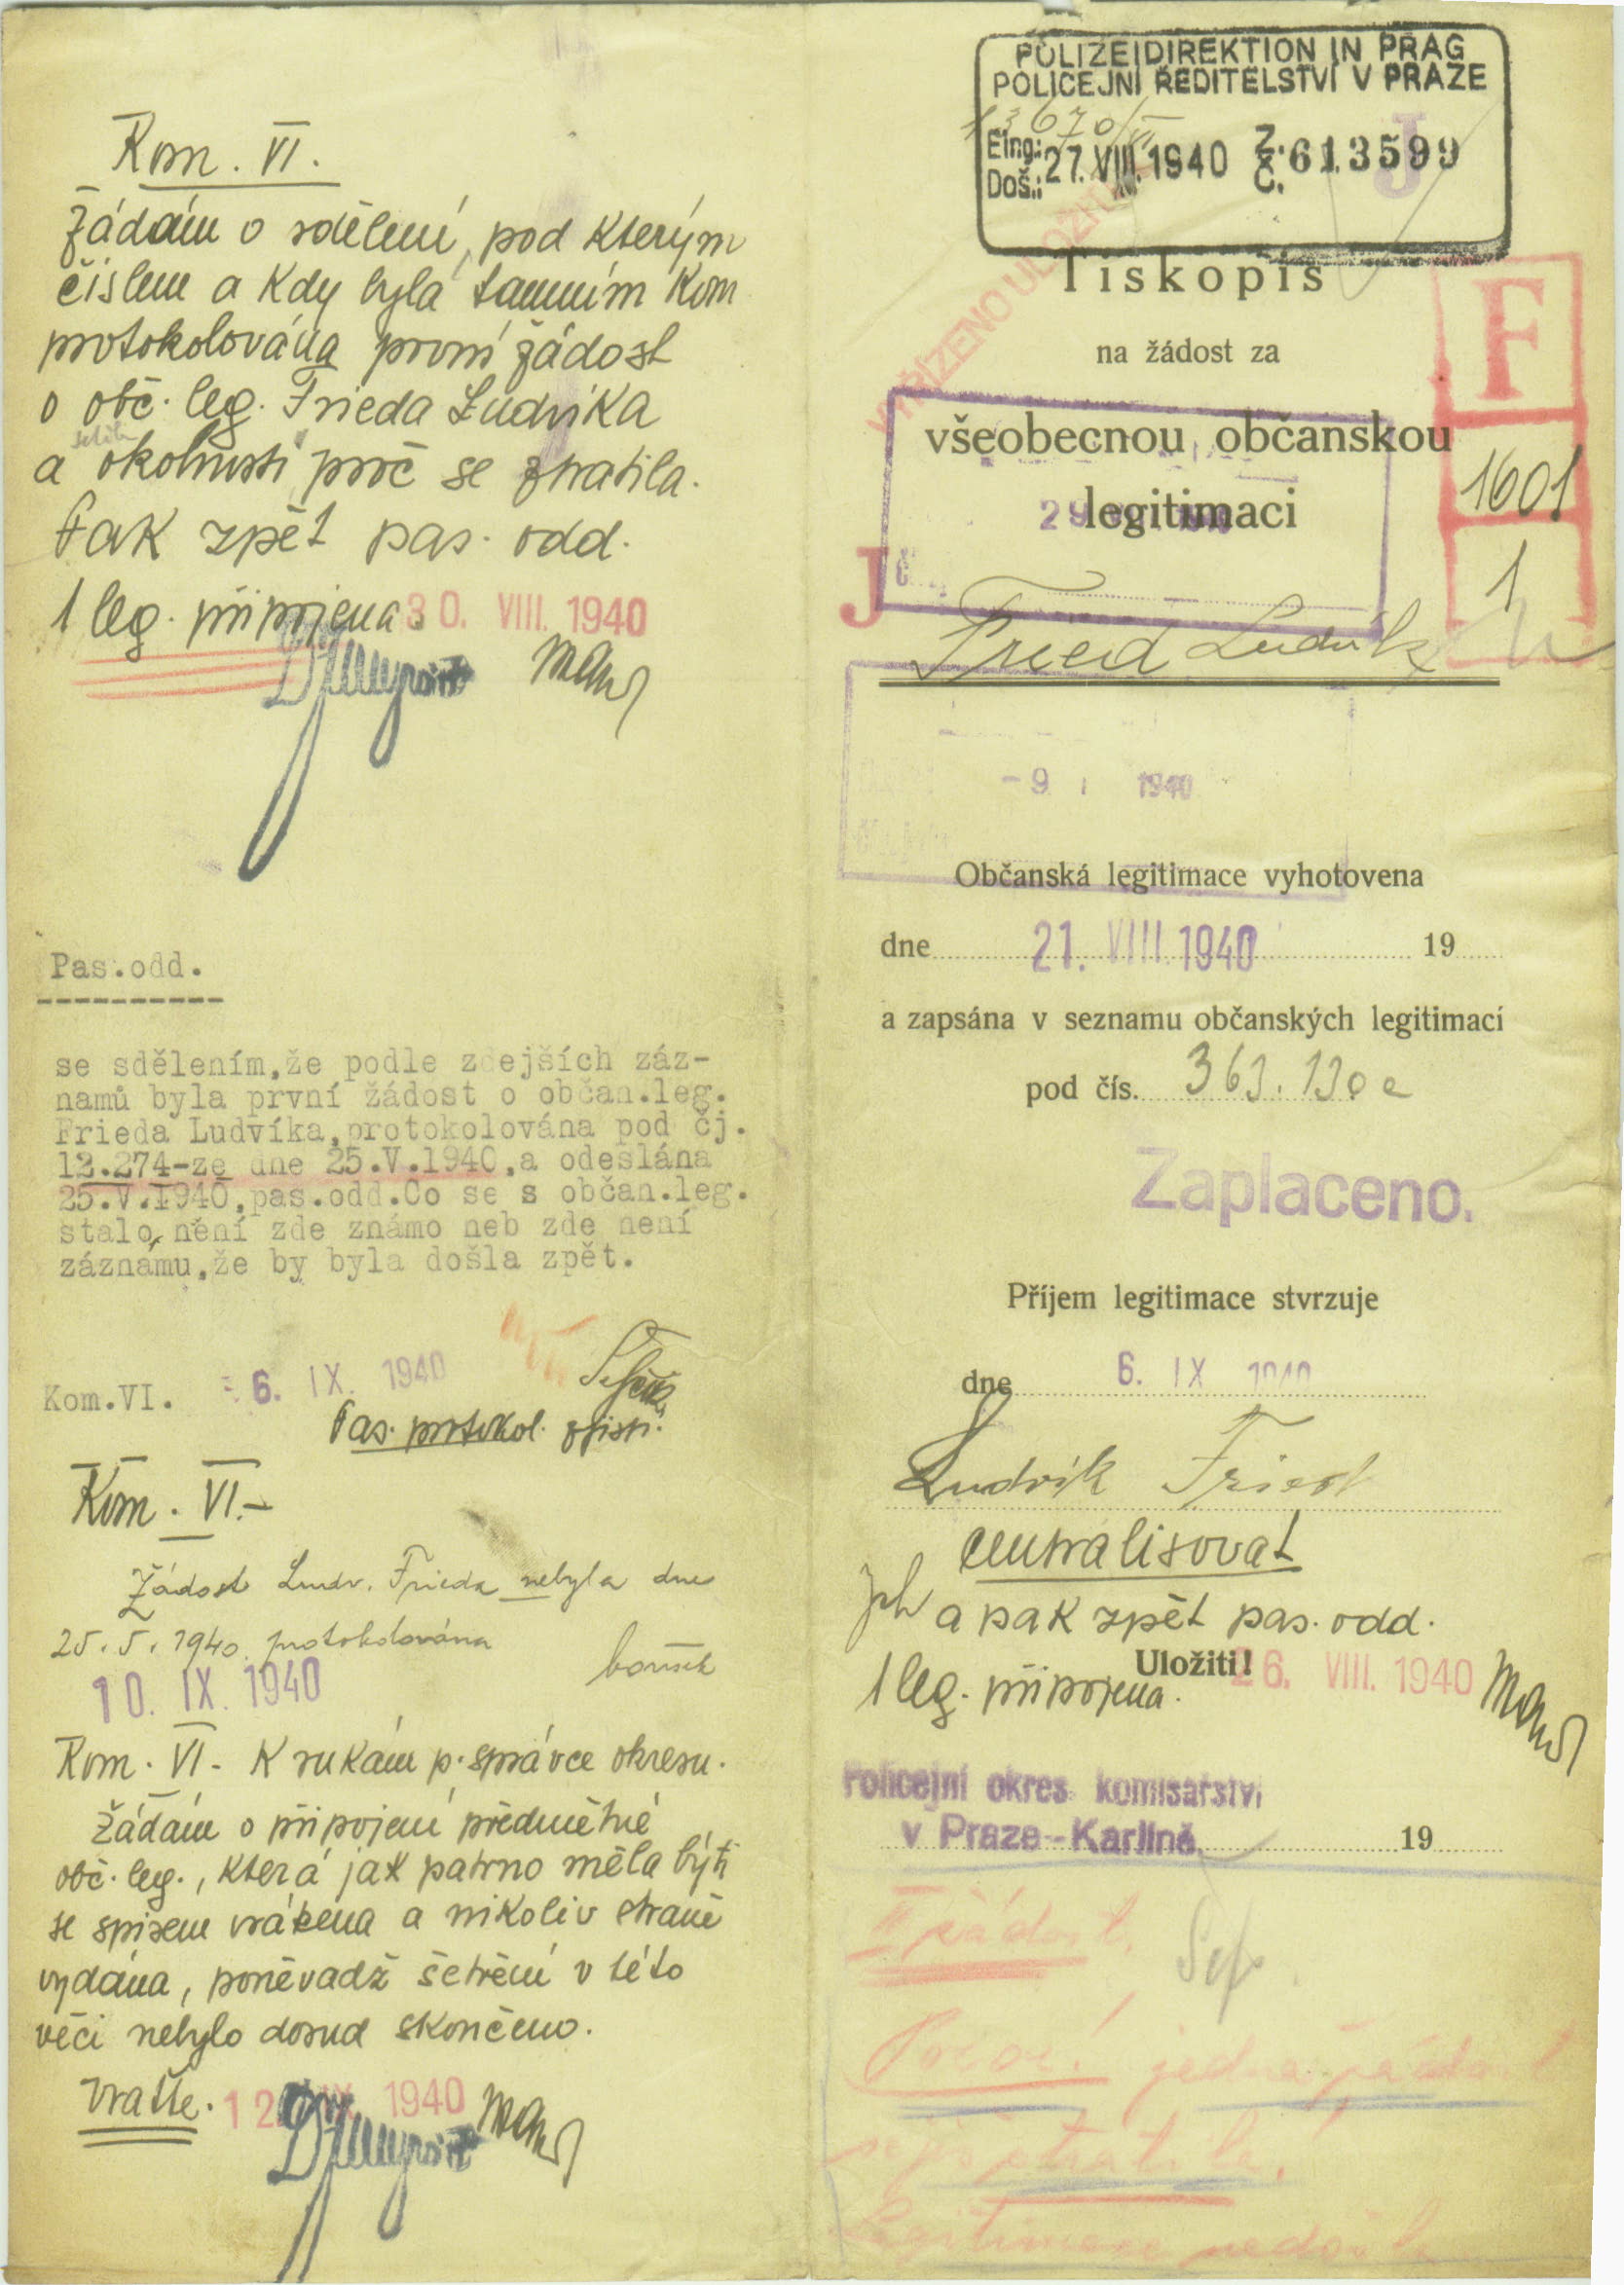 Kom. VI.
Žádám o sdělení, pod kterým
číslem a kdy byla tamním kom
protokolována první žádost
o obč. leg. Frieda Ludvíka
a okolnosti proč se ztratila.
Pak zpět pas. odd.
1 leg. připojena.
30. VIII. 1940
Pas.odd.
se sdělením,že podle zdejších záz-
namů byla první žádost o občan.leg.
Frieda Ludvíka,protokolována pod čj.
12.274-ze dne 25.V.1940,a odeslána
25.V.1940,pas.odd.Co se s občan.leg.
stalo, není zde známo neb zde není
záznamu,že by byla došla zpět.
Kom.VI. - 6. IX. 1940
Pas. protokol. zjisti.
Kom. VI.-
Žádost Ludv. Frieda nebyla dne
25.5.1940. protokolována
10. IX. 1940
Kom. VI- K rukám p. správce okresu.
Žádám o připojení předmětné
obč. leg., která jak patrno měla býti
se spisem vrácena a nikoliv straně
vydána, poněvadž šetření v této
věci nebylo dosud skončeno.
Vraťte. 12. IX. 1940
POLIZEIDIREKTION IN PRAG
POLICEJNÍ ŘEDITELSTVÍ V PRAZE
13670/VI
Eing: Doš.: 27. VIII. 1940 Z. Č. 613599
J
VYŘÍZENO ULOŽIT
Tiskopis
na žádost za
všeobecnou občanskou
legitimaci
F
1601
1
29
J
č.
Fried Ludvík
- 9 1940
Občanská legitimace vyhotovena
dne 21. VIII. 1940 19
a zapsána v seznamu občanských legitimací
pod čís. 363.130 e
Zaplaceno.
Příjem legitimace stvrzuje
dne 6. IX 1940
Ludvík Fried
centralisovat
a pak zpět pas. odd.
Uložiti! 26. VIII. 1940
1 leg. připojena.
Policejní okres. komisařství
v Praze-Karlíně 19
II žádost.
Pozor! jedna žádost
se již ztratila.
Legitimace nedošla